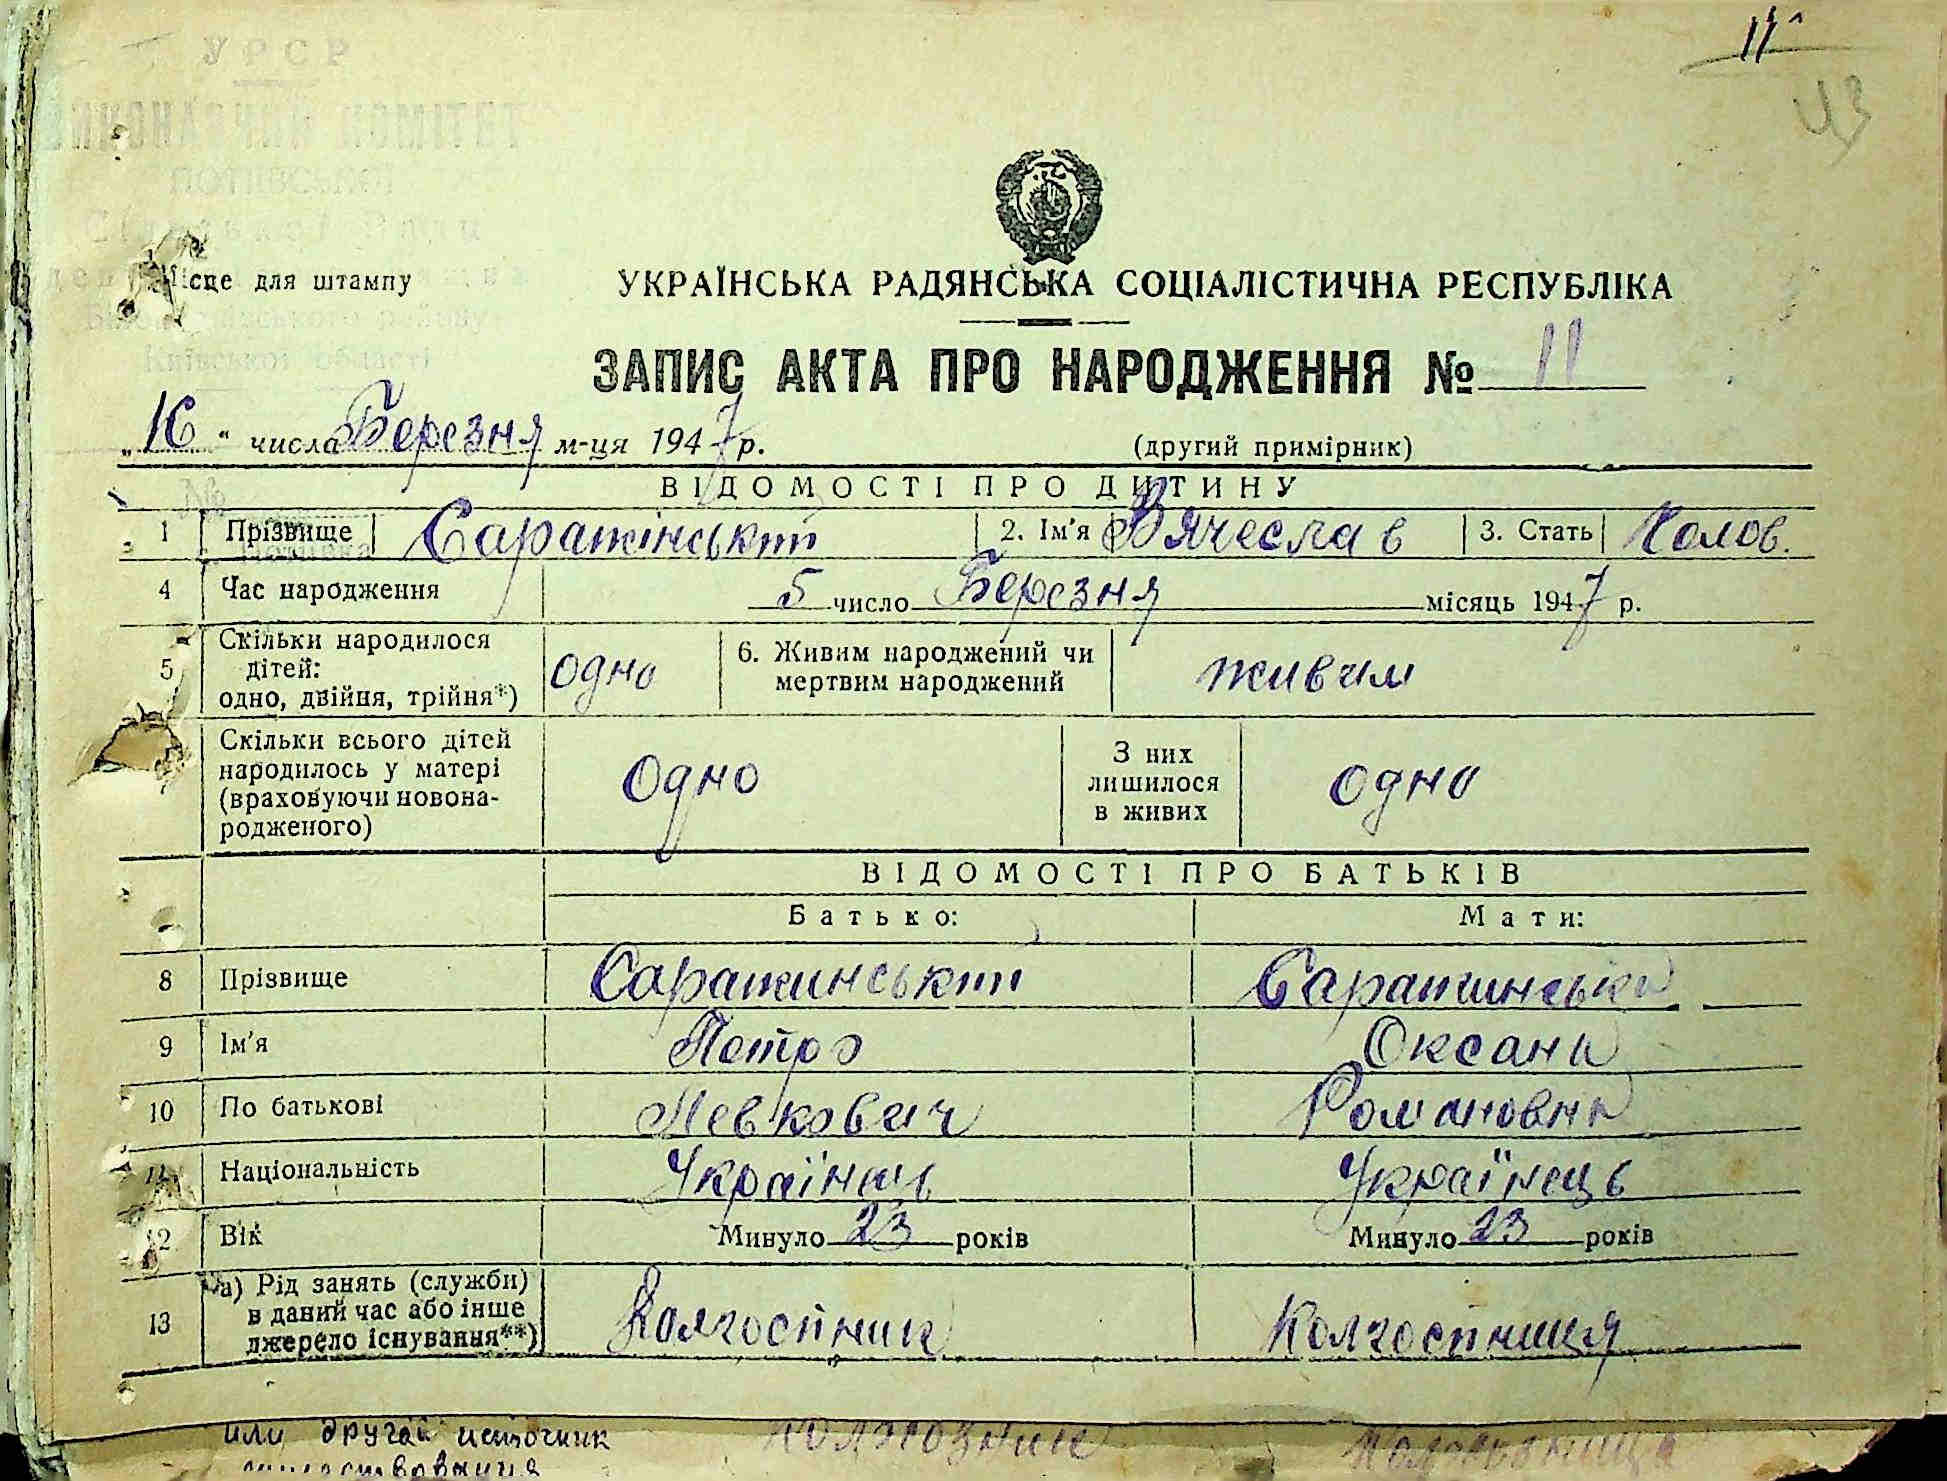 11
43
УРСР
ВИКОНАВЧИЙ КОМІТЕТ
ПОТІЇВСЬКОЇ
Сільської Ради
району
Київської області
Місце для штампу
УКРАЇНСЬКА РАДЯНСЬКА СОЦІАЛІСТИЧНА РЕСПУБЛІКА
ЗАПИС АКТА ПРО НАРОДЖЕННЯ № 11
„16“ числа Березня м-ця 1947 р. (другий примірник)
ВІДОМОСТІ ПРО ДИТИНУ
1 Прізвище Саражінський 2. Ім'я Вячеслав 3. Стать Чолов.
4 Час народження 5 число Березня місяць 1947 р.
5 Скільки народилося дітей: одно, двійня, трійня*) одно 6. Живим народжений чи мертвим народжений живим
Скільки всього дітей народилось у матері (враховуючи новонародженого) одно З них лишилося в живих одно
ВІДОМОСТІ ПРО БАТЬКІВ
Батько: Мати:
8 Прізвище Саражинський Саражинська
9 Ім'я Петро Оксана
10 По батькові Левкович Романовна
11 Національність Українець Українець
12 Вік Минуло 23 років Минуло 23 років
13 а) Рід занять (служби) в даний час або інше джерело існування**) Колгоспник Колгоспниця
или другой источник колхозник колхозница
существования